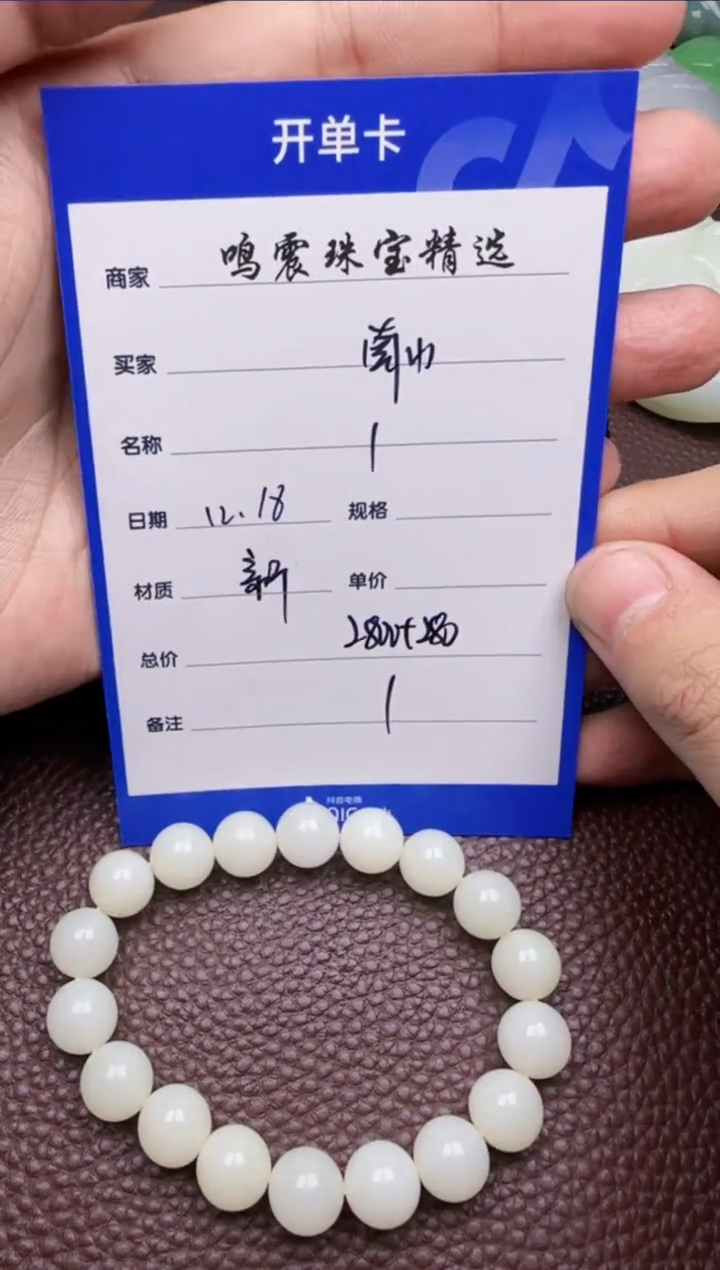 开单卡
商家 鸣震珠宝精选
买家
名称
日期 12.18 规格
材质 新 单价
总价 2800+280
备注
抖音电商